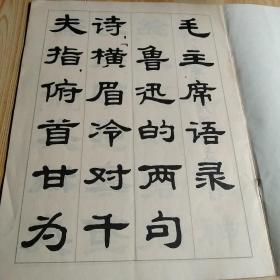 毛主席语录
鲁迅的两句
诗,“横眉冷对千
夫指,俯首甘为